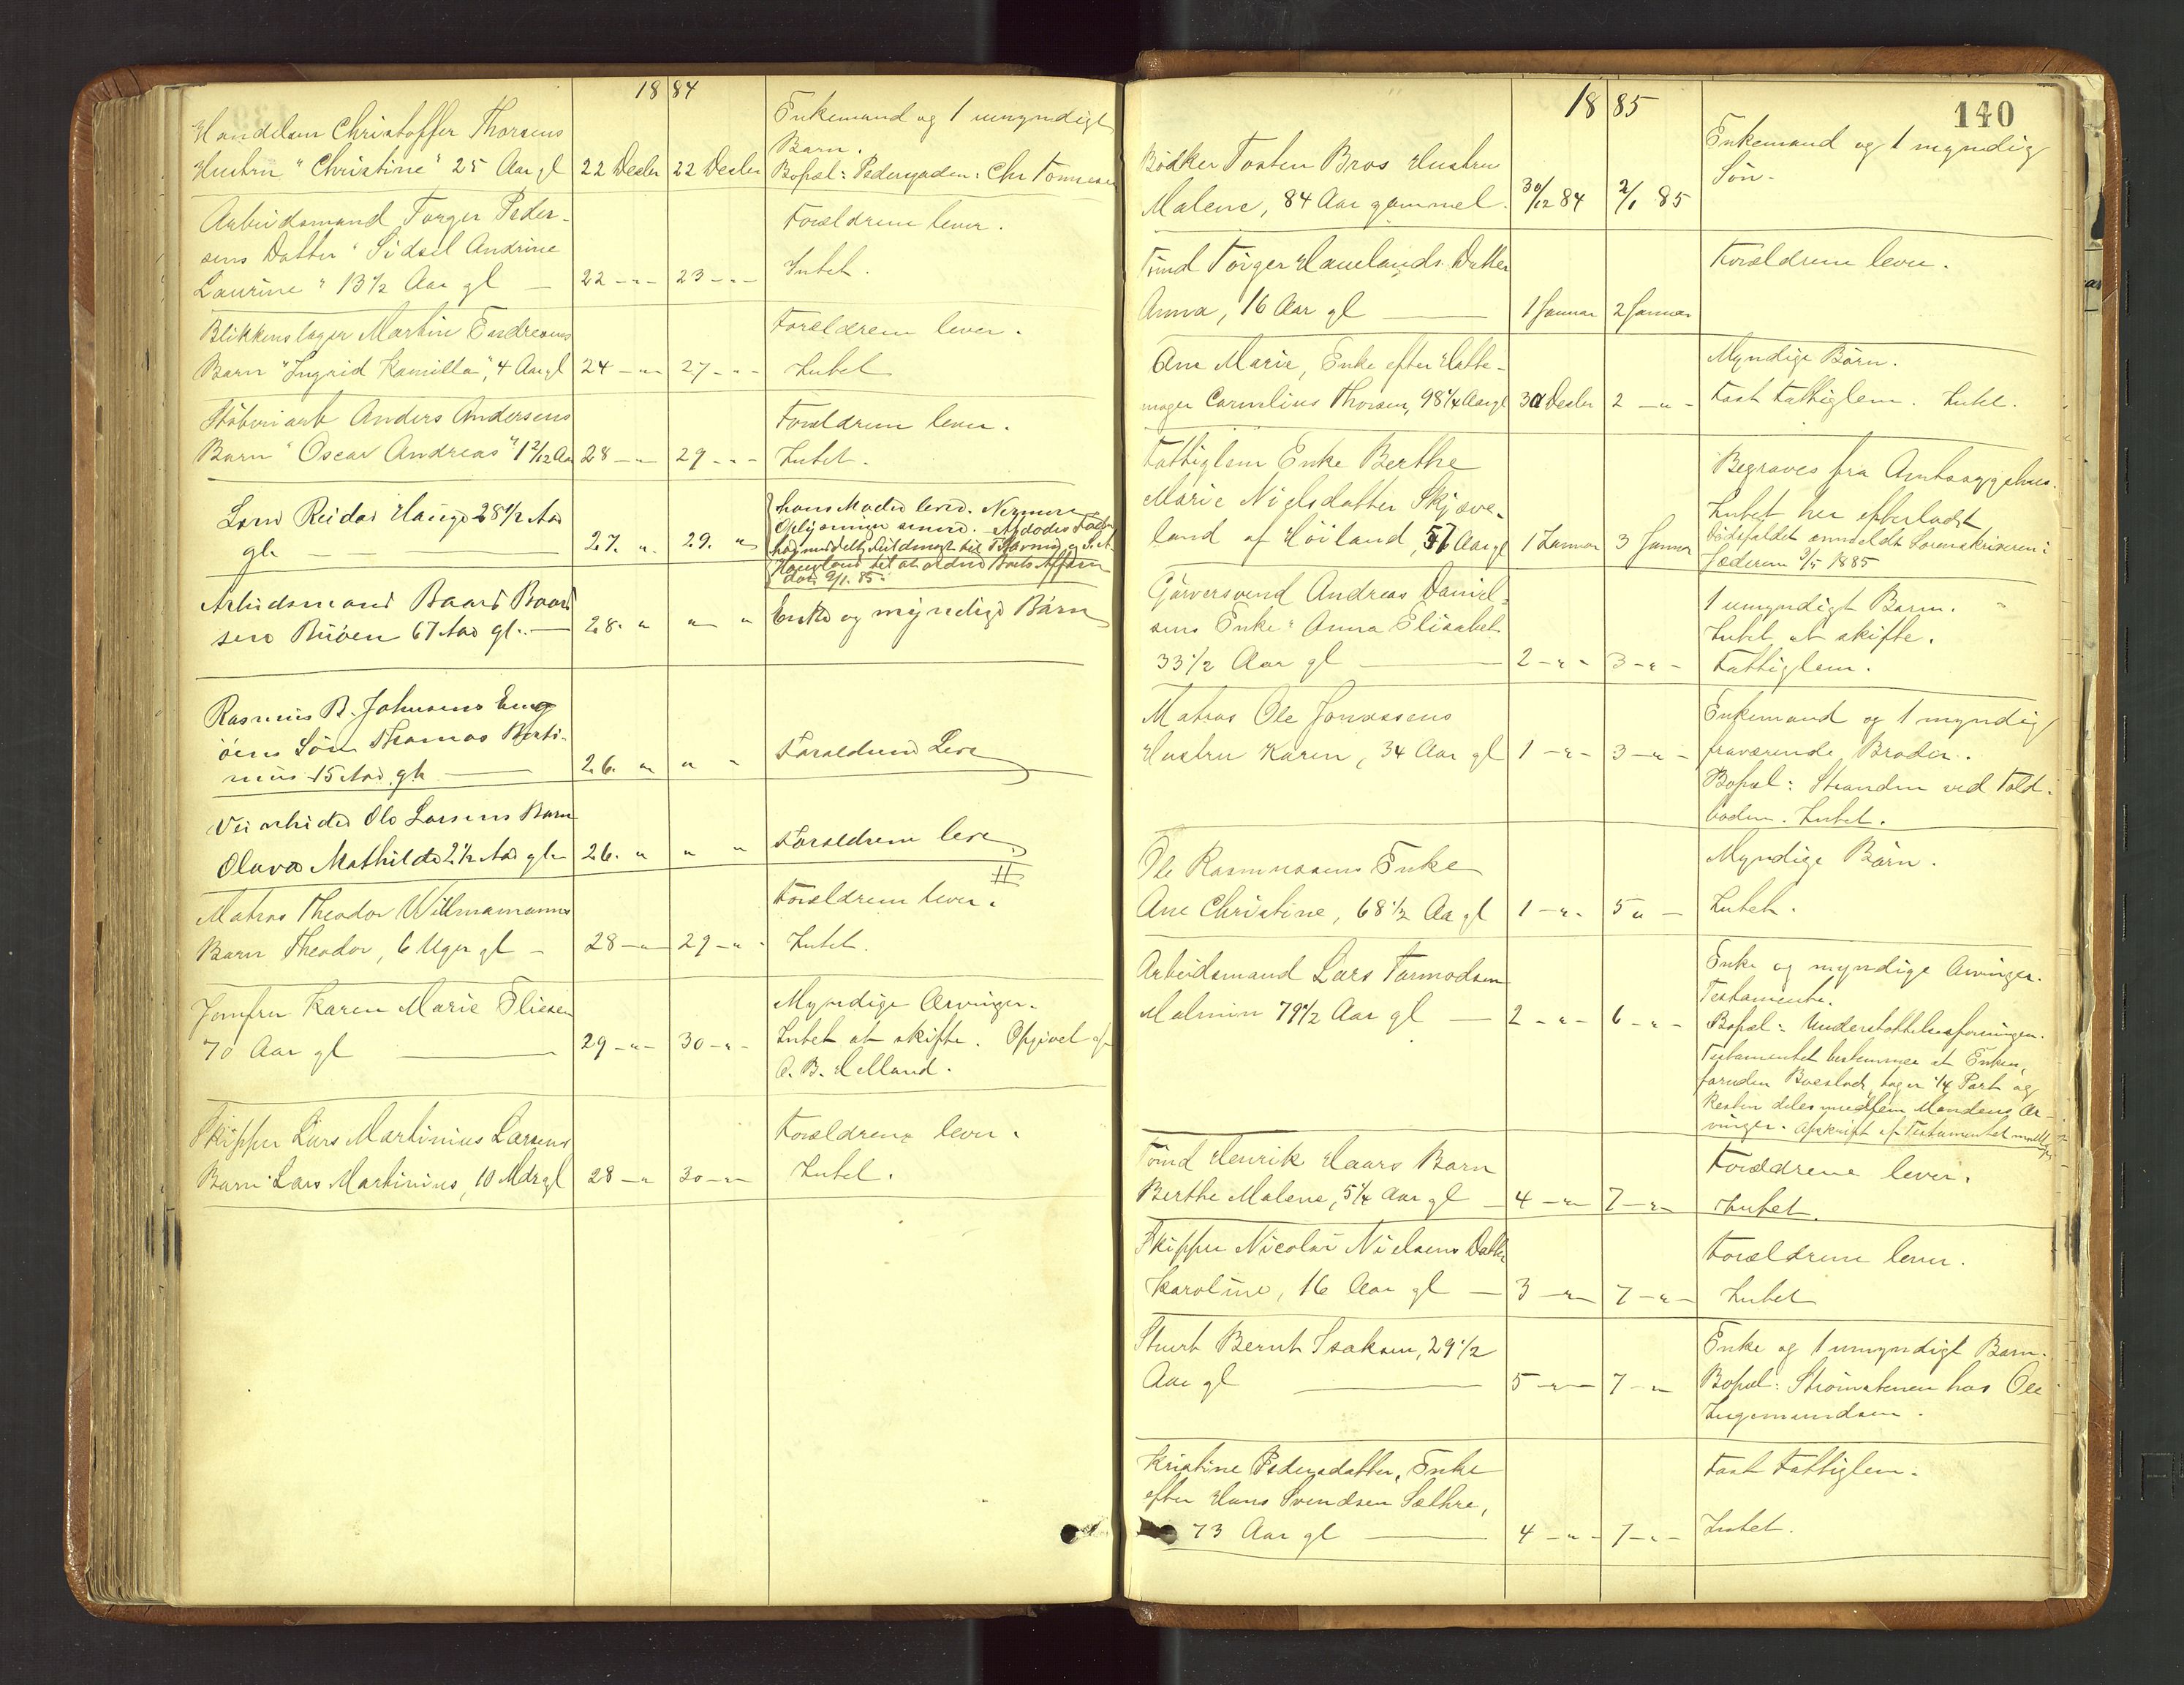 18 84
Handelsm Christoffer Thorsens
Hustru "Christine" 25 Aar gl 22 Decbr 22 Decbr
Enkemand og 1 umyndigt
Barn.
Bopæl: Pedersgaden: Chr Tønnesen
Arbeidsmand Torger Peder-
sens Datter "Sidsel Andrine
Laurine" 13 1/2 Aar gl — 22 - " - 23 - " -
Forældrene lever.
Intet.
Blikkenslager Martin Endresens
Barn "Ingrid Kamilla", 4 Aar gl 24 - " - 27 - " -
Forældrene lever.
Intet
Støberiarb Anders Andersens
Barn "Oscar Andreas" 1 2/12 Aar 28 - " 29 - " -
Forældrene lever.
Intet.
Reidar Hauge 28 1/2 Aar
gl. — 27. " 29. "
hans Moder lever. Nærmere
Oplysninger senere. Afdødes Fader
har meddelt til og
til at ordne Boets Affærer
dat. 9/1. 85.
Arbeidsmand Baard Baard
sen 67 Aar gl. — 28. " " "
Enke og myndige Børn
Rasmus B. Johnsens Eng
øens Søn Thomas Berti-
nius 15 Aar gl. — 26. " " "
Forældrene Leve
Veiarbeider Ole Larsens Barn
Olava Mathilde 2 1/2 Aar gl. 26. " " "
Forældrene leve
Matros Theodor Willmamanns
Barn Theodor, 6 Uger gl — 28 - " 29 - " -
Forældrene lever.
Intet.
Jomfru Karen Marie Eliesen
70 Aar gl — 29 - " - 30 - " -
Myndige Arvinger.
Intet at skifte. Opgivet af
A. B. Helland.
Skipper Lars Martinius Larsens
Barn Lars Martinius, 10 Mdr gl 28 - " 30 - " -
Forældrene lever.
Intet.
140
18 85
Bødker Tosten Bros Hustru
Malene, 84 Aar gammel. 30/12 84 2/1 85
Enkemand og 1 myndig
Søn.
Tømd Torger Hauelands Datter
Anna, 16 Aar gl — 1 Januar 2 Januar
Forældrene lever.
Ane Marie, Enke efter Hatte-
mager Cornelius Thorsen, 98 1/4 Aar gl 30 Decbr 2 - " -
Myndige Børn.
Fast Fattiglem. Intet.
Fattiglem Enke Berthe
Marie Nielsdatter Skjæve-
land af Høiland, 57 Aar gl 1 Januar 3 Januar
Begraves fra Amtssygehuset.
Intet her efterladt
Dødsfaldet anmeldt Sorenskriveren i
Jæderen 9/5 1885
Garversvend Andreas Daniel-
sens Enke "Anna Elisabet
33 1/2 Aar gl — 2 - " - 3 - " -
1 umyndigt Barn.
Intet at skifte.
Fattiglem.
Matros Ole Jonassens
Hustru Karen, 34 Aar gl 1 - " - 3 - " -
Enkemand og 1 myndig
fraværende Broder.
Bopæl: Stranden ved Told-
boden. Intet.
Ole Rasmussens Enke
Ane Christine, 68 1/2 Aar gl 1 - " - 5 " -
Myndige Børn.
Intet.
Arbeidsmand Lars Tormodsen
Malmin 79 1/2 Aar gl — 2 - " - 6 - " -
Enke og myndige Arvinger.
Testamente.
Bopæl: Understøttelsesforeningen.
Testamentet bestemmer at Enken,
foruden Boeslod, tager 1/4 Part og
Resten deles mellem Mandens Ar-
vinger. Afskrift af Testamentet
Tømd Henrik Haars Barn
Berthe Malene, 5 1/4 Aar gl — 4 - " - 7 - " -
Forældrene lever.
Intet.
Skipper Nicolai Nielsens Datter
Karoline, 16 Aar gl — 3 - " - 7 - " -
Forældrene lever.
Intet
Stuert Bernt Isaksen, 29 1/2
Aar gl — 5 - " - 7 - "
Enke og 1 umyndigt Barn.
Bopæl: Strømstenen hos Ole
Ingemundsen.
Kristine Pedersdatter, Enke
efter Hans Svendsen Sælhre,
73 Aar gl — 4 - " - 7 - " -
Fast Fattiglem.
Intet.